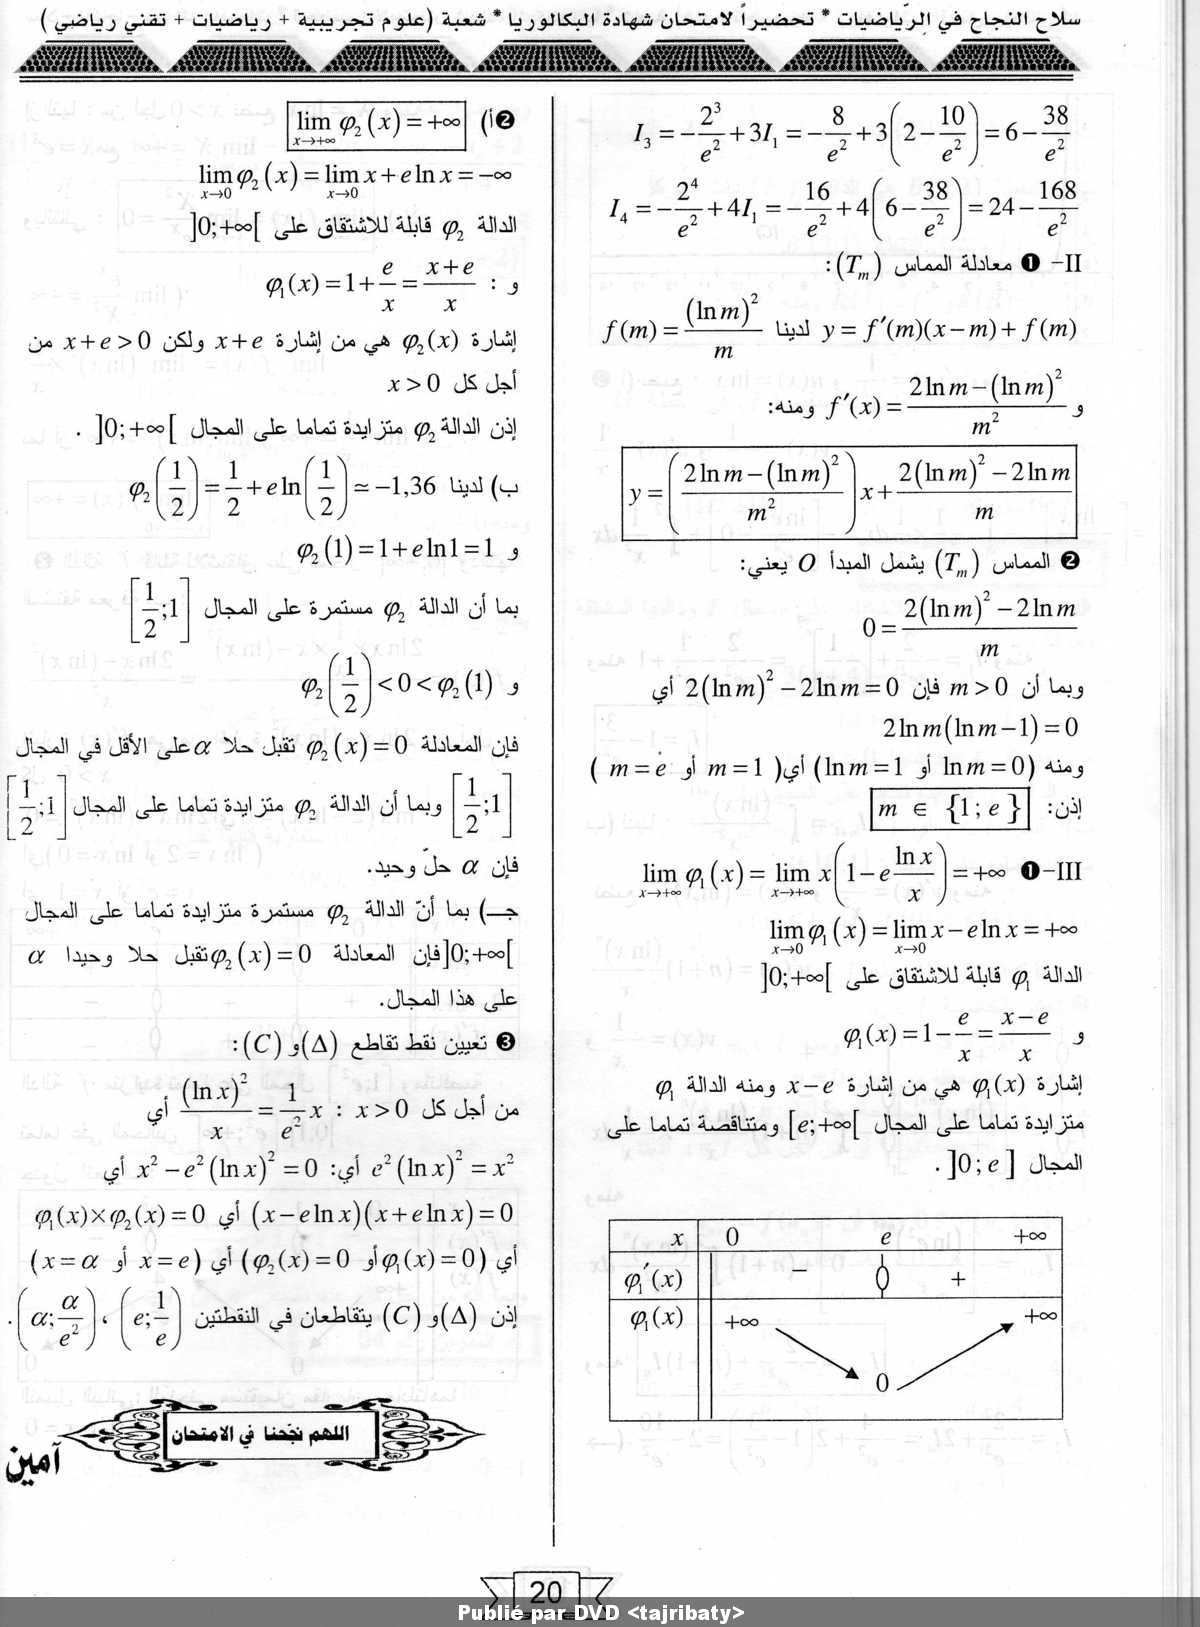 سلاح النجاح في الرّياضيات * تحضيراً لامتحان شهادة البكالوريا * شعبة (علوم تجريبية + رياضيات + تقني رياضي )
I₃ = −2³/e² + 3I₁ = −8/e² + 3(2 − 10/e²) = 6 − 38/e²
I₄ = −2⁴/e² + 4I₁ = −16/e² + 4(6 − 38/e²) = 24 − 168/e²
II- ❶ معادلة المماس (Tₘ):
y = f′(m)(x−m) + f(m) لدينا f(m) = (ln m)²/m
و f′(x) = (2ln m − (ln m)²)/m² ومنه:
y = ((2ln m − (ln m)²)/m²) x + (2(ln m)² − 2ln m)/m
❷ المماس (Tₘ) يشمل المبدأ O يعني:
0 = (2(ln m)² − 2ln m)/m
وبما أن m > 0 فإن 2(ln m)² − 2ln m = 0 أي
2ln m(ln m − 1) = 0
ومنه (ln m = 0 أو ln m = 1) أي( m = 1 أو m = e )
إذن: m ∈ {1 ; e}
III- ❶ lim x→+∞ φ₁(x) = lim x→+∞ x(1 − e ln x/x) = +∞
lim x→0 φ₁(x) = lim x→0 x − e ln x = +∞
الدالة φ₁ قابلة للاشتقاق على ]0;+∞[
و φ₁(x) = 1 − e/x = (x−e)/x
إشارة φ₁(x) هي من إشارة x−e ومنه الدالة φ₁
متزايدة تماما على المجال [e;+∞[ ومتناقصة تماما على
المجال ]0 ; e] .
x 0 e +∞
φ₁′(x) − 0 +
φ₁(x) +∞ 0 +∞
❷أ) lim x→+∞ φ₂(x) = +∞
lim x→0 φ₂(x) = lim x→0 x + e ln x = −∞
الدالة φ₂ قابلة للاشتقاق على ]0;+∞[
و : φ₁(x) = 1 + e/x = (x+e)/x
إشارة φ₂(x) هي من إشارة x+e ولكن x+e > 0 من
أجل كل x > 0
إذن الدالة φ₂ متزايدة تماما على المجال ]0; +∞[ .
ب) لدينا φ₂(1/2) = 1/2 + e ln(1/2) ≃ −1,36
و φ₂(1) = 1 + e ln 1 = 1
بما أن الدالة φ₂ مستمرة على المجال [1/2 ;1]
و φ₂(1/2) < 0 < φ₂(1)
فإن المعادلة φ₂(x) = 0 تقبل حلا α على الأقل في المجال
[1/2 ;1] وبما أن الدالة φ₂ متزايدة تماما على المجال [1/2 ;1]
فإن α حلّ وحيد.
جـ) بما أنّ الدالة φ₂ مستمرة متزايدة تماما على المجال
]0;+∞[ فإن المعادلة φ₂(x) = 0 تقبل حلا وحيدا α
على هذا المجال.
❸ تعيين نقط تقاطع (Δ)و (C):
من أجل كل x > 0 : (ln x)²/x = (1/e²)x أي
e²(ln x)² = x² أي: x² − e²(ln x)² = 0 أي
(x − e ln x)(x + e ln x) = 0 أي φ₁(x)×φ₂(x) = 0
أي (φ₁(x) = 0 أو φ₂(x) = 0) أي (x = e أو x = α)
إذن (Δ)و (C) يتقاطعان في النقطتين (e; 1/e) ، (α; α/e²).
اللهم نجّحنا في الامتحان
آمين
20
Publié par DVD <tajribaty>